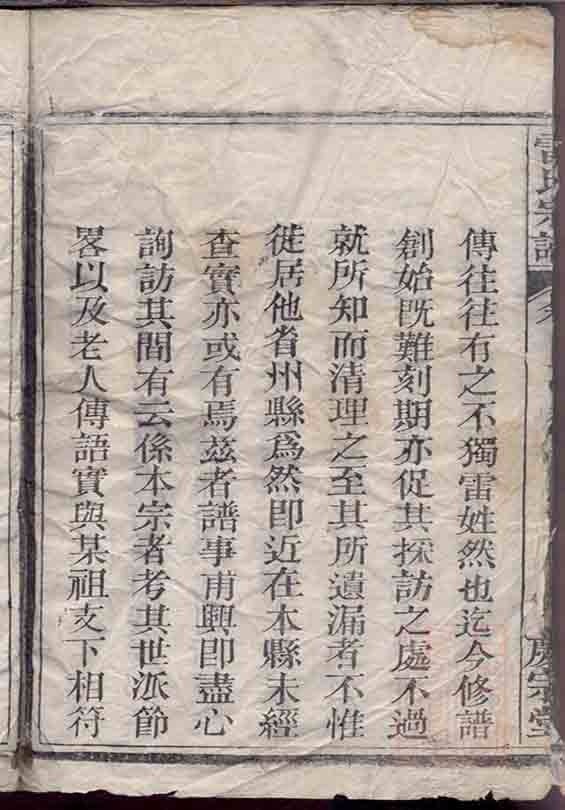 傳往往有之不獨雷姓然也迄今修譜
創始既難刻期亦促其採訪之處不過
就所知而清理之至其所遺漏者不惟
徙居他省州縣爲然即近在本縣未經
查實亦或有焉茲者譜事甫興即盡心
詢訪其間有云係本宗者考其世派節
畧以及老人傳語實與某祖支下相符